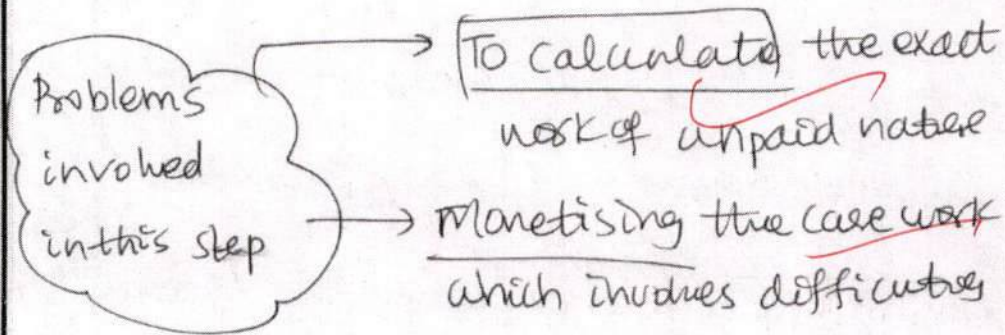 Problems
involved
in this step
To calculate the exact
work of unpaid nature
Monetising the care work
which involves difficulties